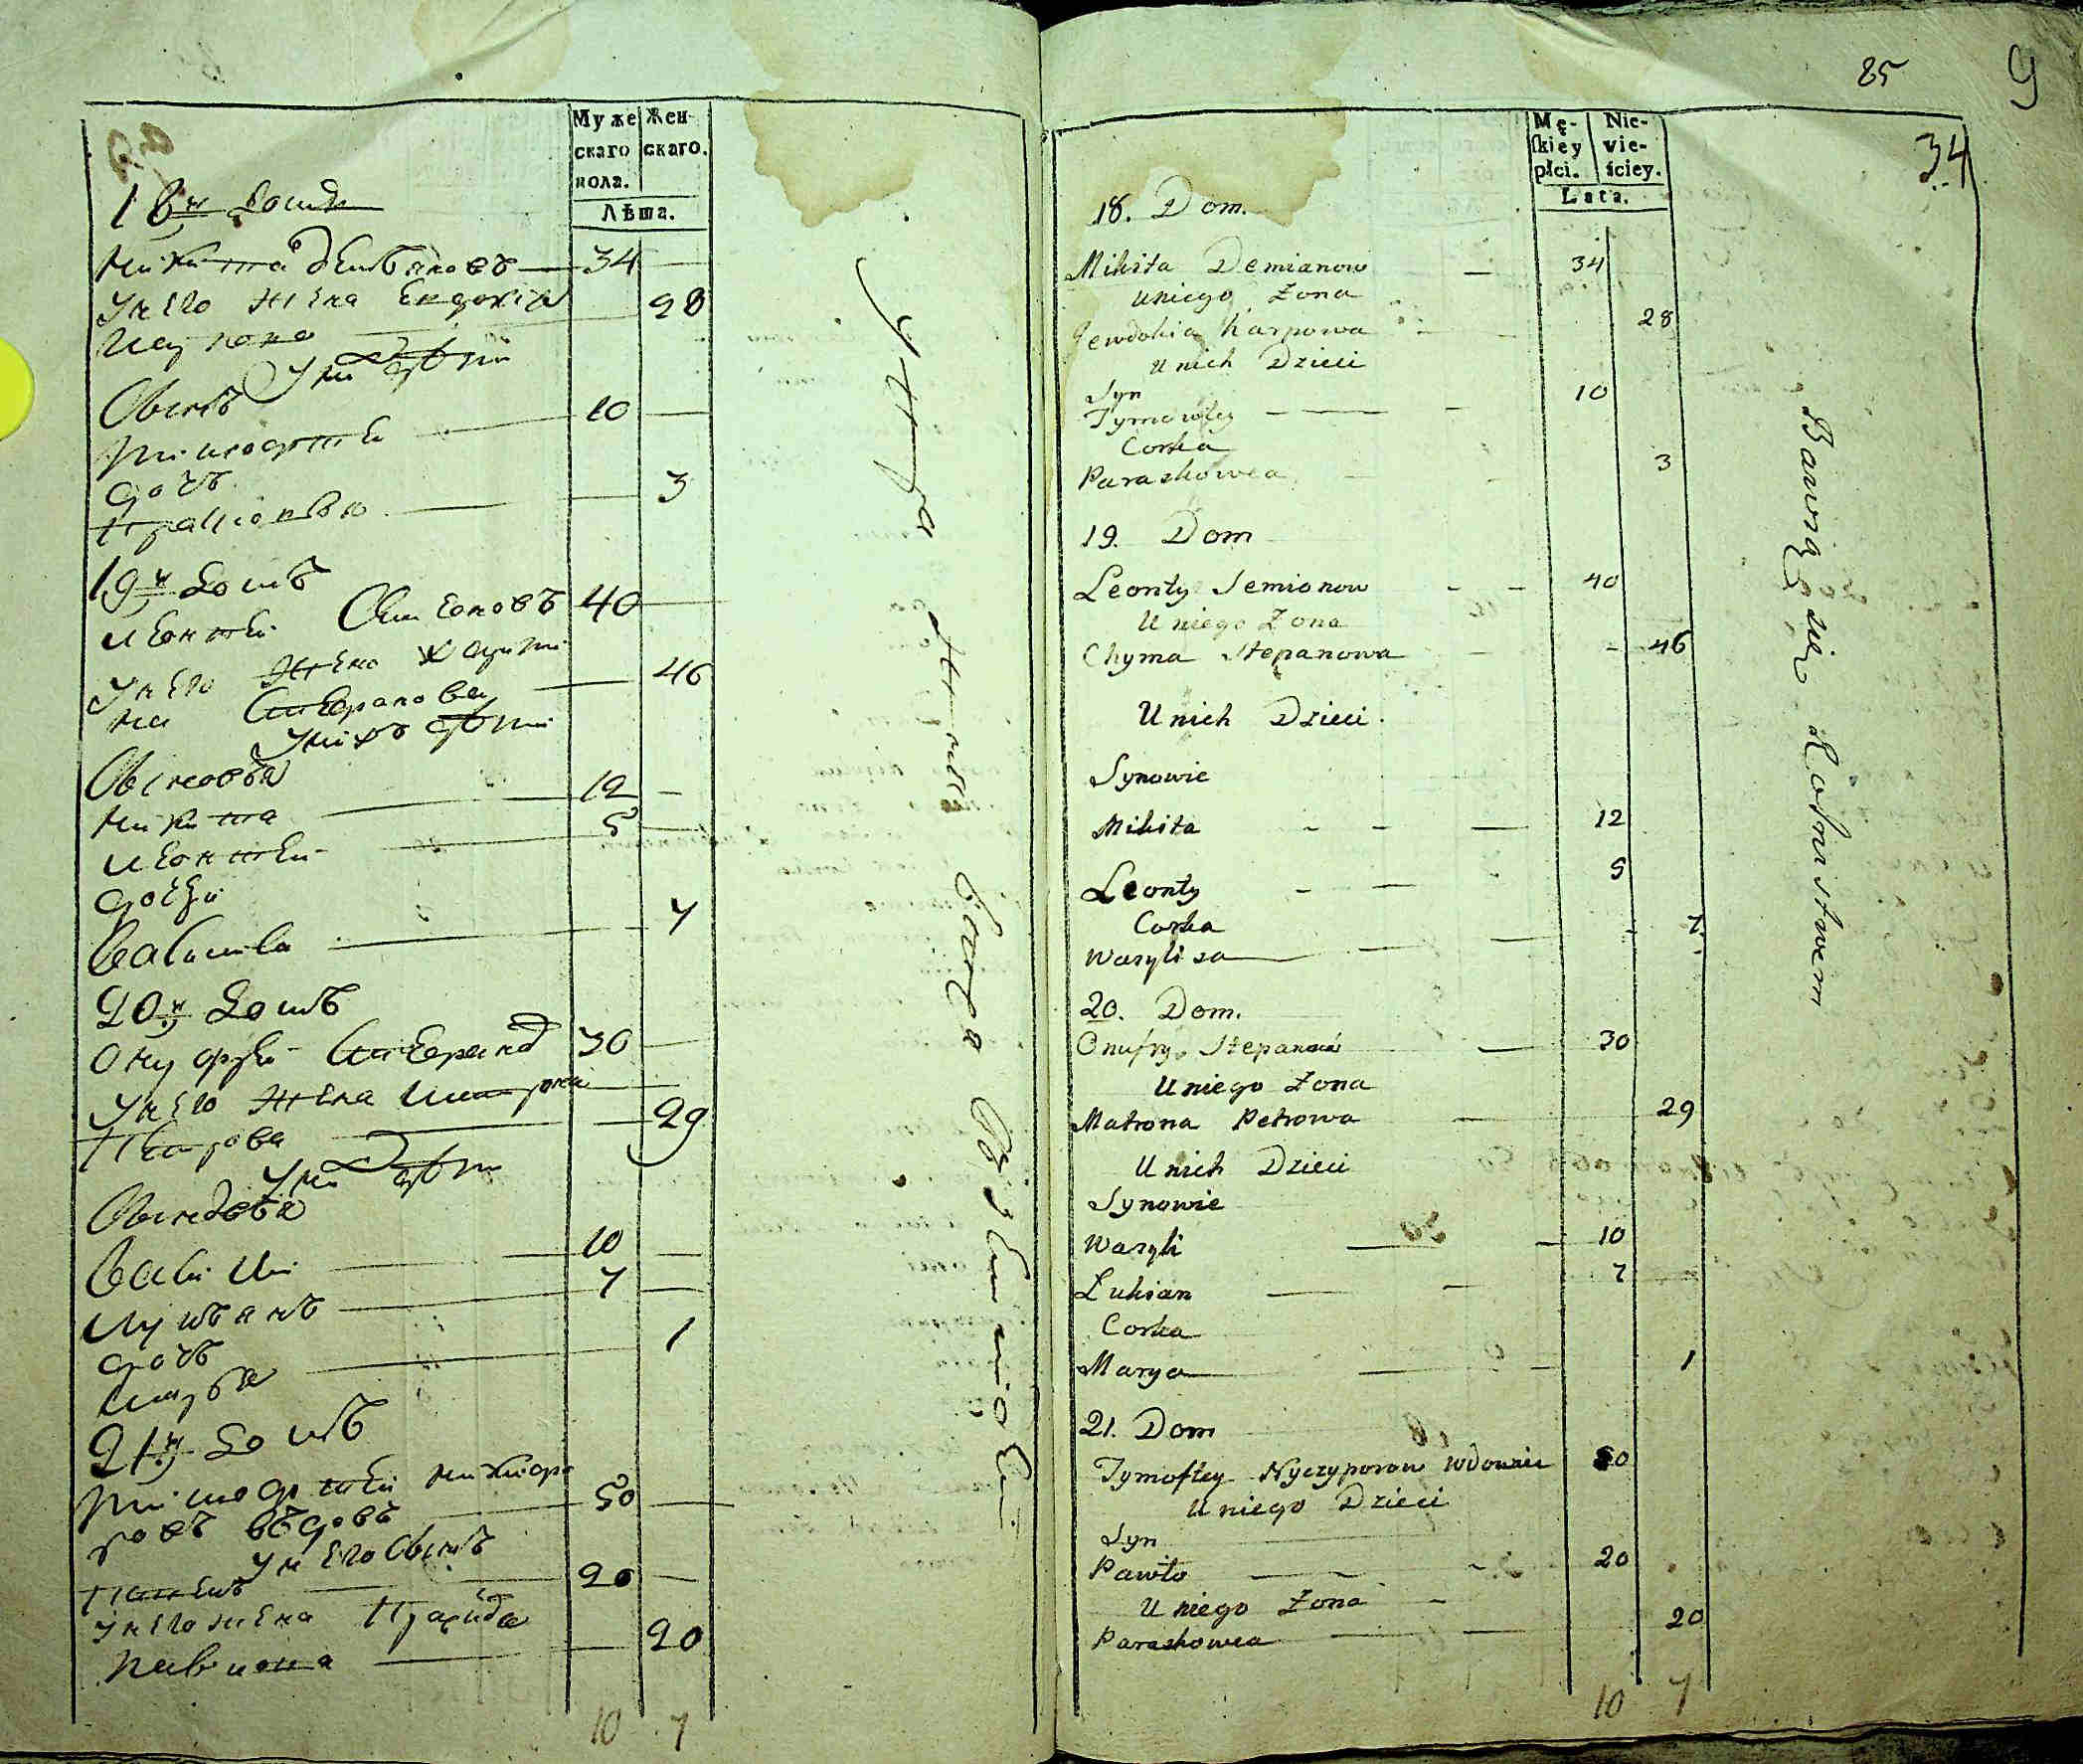 Муже Жен-
скаго скаго.
пола.
Лѣта.
18й Домъ
Никита демьяновъ 34
Унего жена Евдокия 28
Унихъ дѣти
Сынъ
Тимофей 10
дочь 3
19й Домъ
Леонтей Семеновъ 40
Унего жена
Степанова 46
Унихъ дѣти
Сыновья
Никита 12
Леонтей 5
дочь
Василиса 7
20й Домъ
Онуфрей Степанов 30
Унего жена Матрона
Петрова 29
Унихъ дѣти
Сыновья
Василей 10
Лукьянъ 7
дочь
Марья 1
21й Домъ
Тимофей Никифо
ровъ вдовъ 50
Унего Сынъ
20
Унего жена
20
10 7
85
9
34
Mę- Nie-
skiey vie-
płci. ściey.
Lata.
18. Dom.
Mikita Demianow 34
Uniego Żona
Jewdokia Karpowa 28
Unich Dzieci
Syn 10
Tymoftey
Corka
Paraskowea 3
19. Dom
Leonty Semionow 40
Uniego Żona
Chyma Stepanowa 46
Unich Dzieci.
Synowie
Mikita 12
Leonty 5
Corka 7
Wasylisa
20. Dom.
Onufry Stepanow 30
Uniego Żona
Matrona Petrowa 29
Unich Dzieci
Synowie
Wasyli 10
Łukian 7
Corka
Marya 1
21. Dom
Tymoftey Nyczyporow Wdowiec 50
Uniego Dzieci
Syn
Pawło 20
Uniego Żona
Paraskowea 20
10 7
Bawią się Rolnistwem